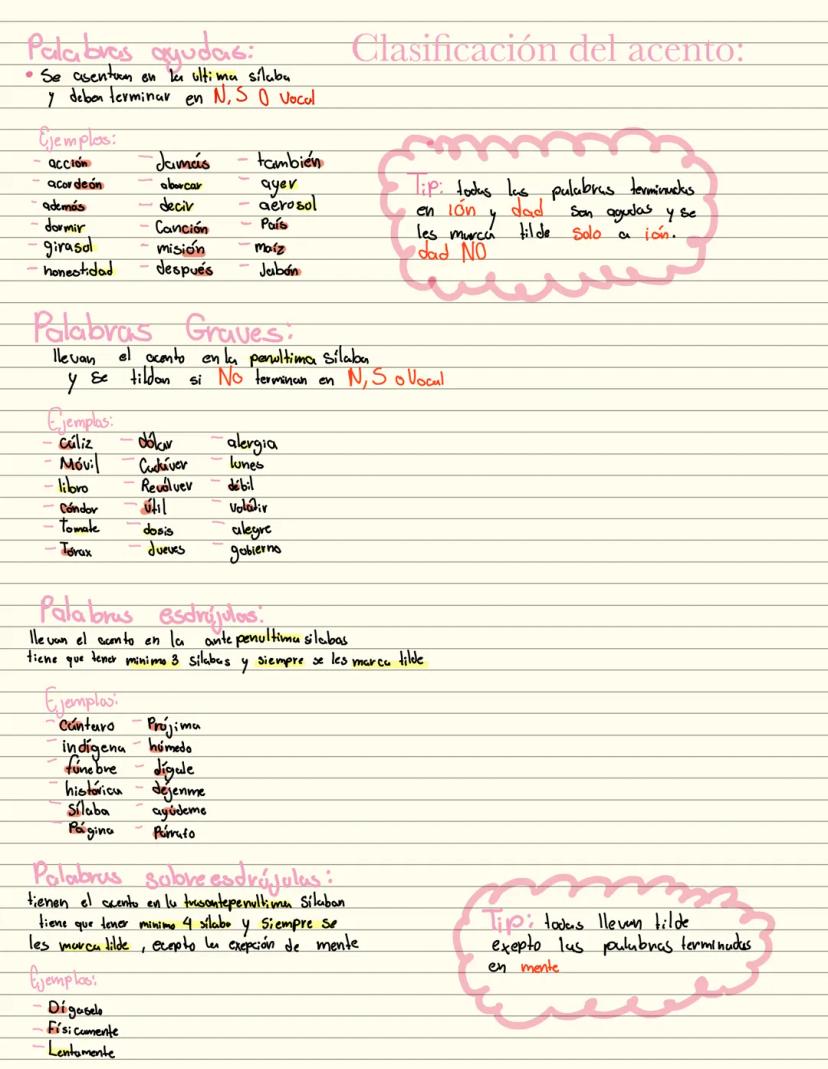 Clasificación del acento:
Palabras agudas:
• Se asentuan en la ultima sílaba
y deben terminar en N, S O Vocal
Ejemplos:
- acción - Jamás - también
- acordeón - abarcar - ayer
- además - decir - aerosol
- dormir - Canción - País
- girasol - misión - maíz
- honestidad - después - Jabón
Tip: todas las palabras terminadas
en ión y dad son agudas y se
les marca tilde solo a ión.
dad NO
Palabras Graves:
llevan el acento en la penultima sílaba
y se tildan si No terminan en N, S o Vocal
Ejemplos:
- Cáliz - dólar - alergia
- Móvil - Cadáver - lunes
- libro - Revólver - débil
- Cóndor - útil - Volátir
- Tomate - dosis - alegre
- Tórax - Jueves - gobierno
Palabras esdrújulas:
llevan el acento en la ante penultima silabas
tiene que tener minimo 3 sílabas y siempre se les marca tilde
Ejemplos:
- Cántaro - Prójima
- indígena - húmedo
- fúnebre - dígale
- histórica - déjenme
- Sílaba - ayúdeme
- Página - Párrafo
Palabras sobreesdrújulas:
tienen el acento en la trasantepenultima Sílaban
tiene que tener minimo 4 sílabo y Siempre se
les marca tilde, ecepto la exepción de mente
Tip: todas llevan tilde
exepto las palabras terminadas
en mente
Ejemplos:
- Dígaselo
- Físicamente
- Lentamente